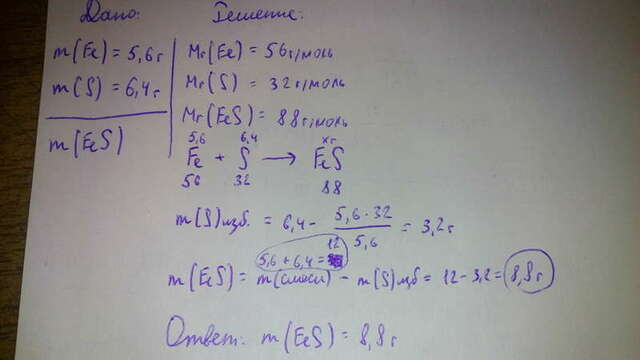 Дано: Решение:
m(Fe) = 5,6 г Mr(Fe) = 56 г/моль
m(S) = 6,4 г Mr(S) = 32 г/моль
m(FeS) Mr(FeS) = 88 г/моль
5,6 6,4 xг
Fe + S → FeS
56 32 88
m(S)изб. = 6,4 - 5,6·32 / 5,6 = 3,2 г
5,6 + 6,4 = 12
m(FeS) = m(смеси) - m(S)изб = 12 - 3,2 = 8,8 г
Ответ: m(FeS) = 8,8 г